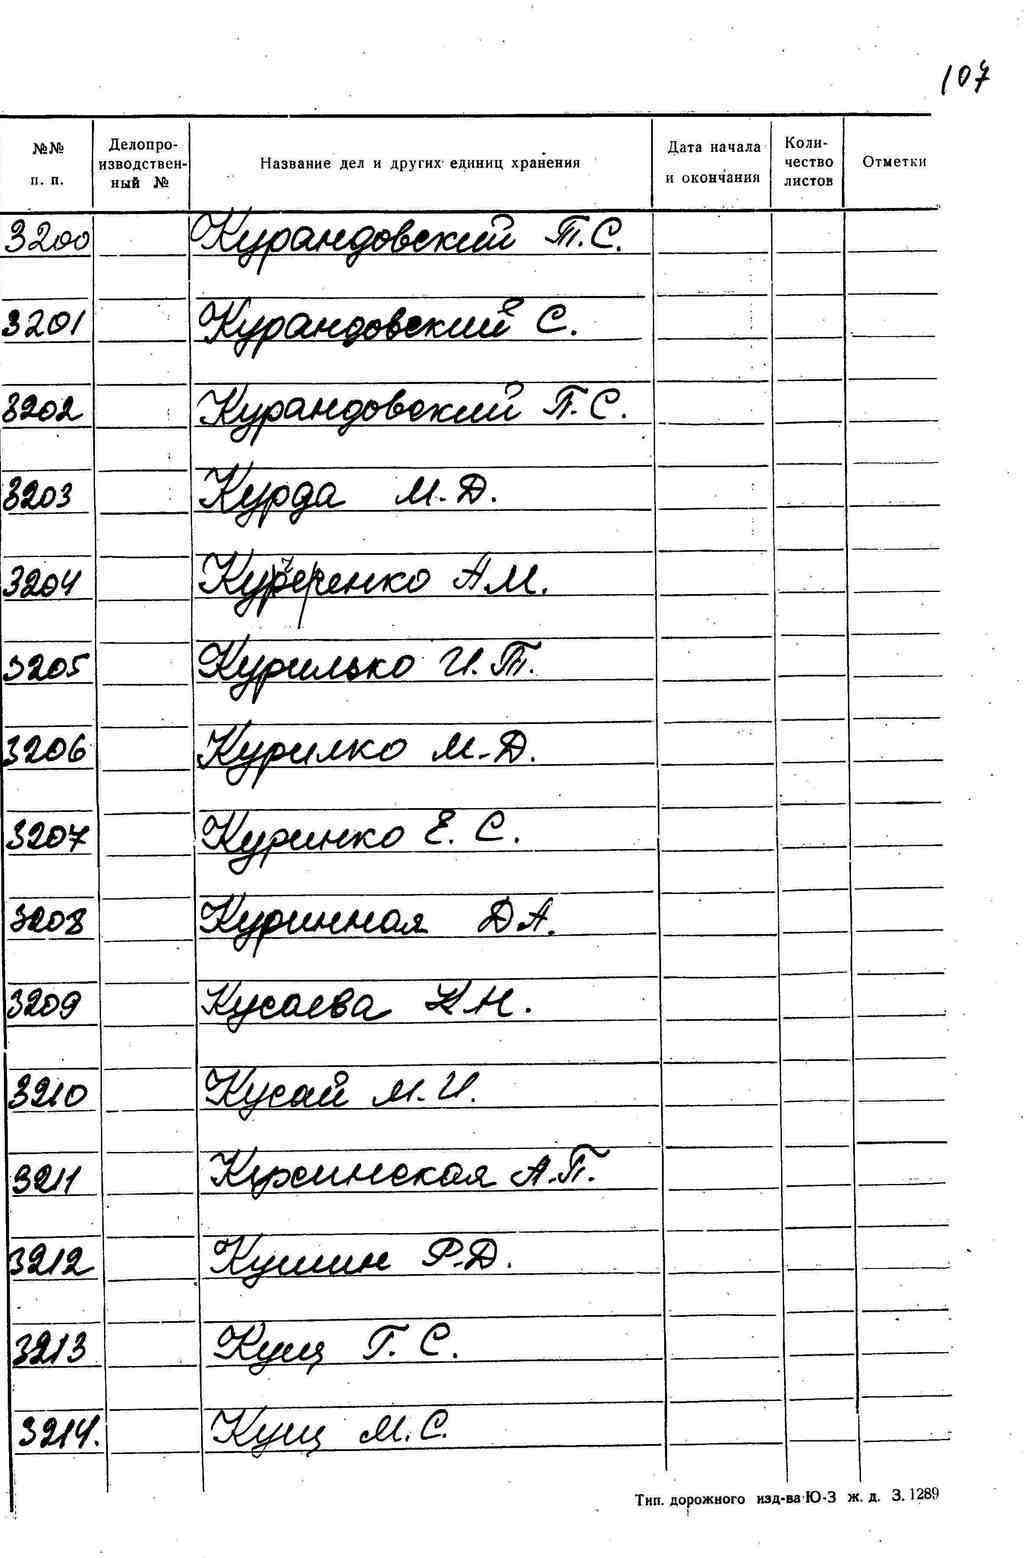 107
№№ п. п. Делопроизводственный № Название дел и других единиц хранения Дата начала и окончания Количество листов Отметки
3200 Курандовский Т.С.
3201 Курандовский С.
3202 Курандовский П.С.
3203 Курда М.Д.
3204 А.М.
3205 Курилько И.Т.
3206 Курилко М.Д.
3207 Куринко Е.С.
3208 Куринная Д.А.
3209 Кусаева Н.Н.
3210 Кусай М.И.
3211 Курсинская А.П.
3212 Кушин Р.Д.
3213 Кущ Г.С.
3214. Кущ М.С.
Тип. дорожного изд-ва Ю-З ж. д. З. 1289